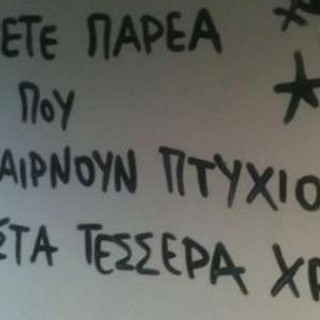 ΕΤΕ ΠΑΡΕΑ
ΠΟΥ
ΑΙΡΝΟΥΝ ΠΤΥΧΙΟ
ΣΤΑ ΤΕΣΣΕΡΑ ΧΡ